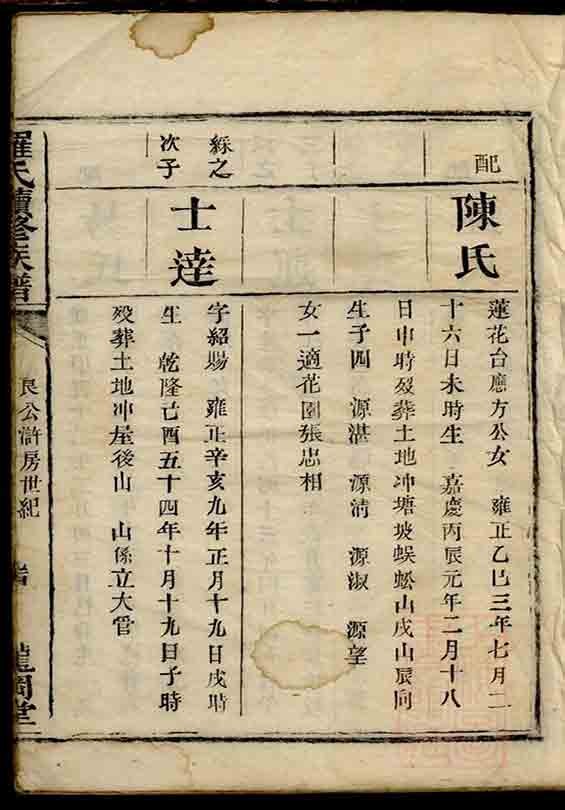 配
陳氏
蓮花台應方公女 雍正乙巳三年七月二
十六日未時生 嘉慶丙辰元年二月十八
日申時歿葬土地冲塘坡蜈蚣山戌山辰向
生子四 源湛 源清 源淑 源望
女一適花園張忠相
綵之
次子
士達
字紹賜 雍正辛亥九年正月十九日戌時
生 乾隆己酉五十四年十月十九日子時
歿葬土地冲屋後山 山係立大官
羅氏續修族譜
良公滸房世紀